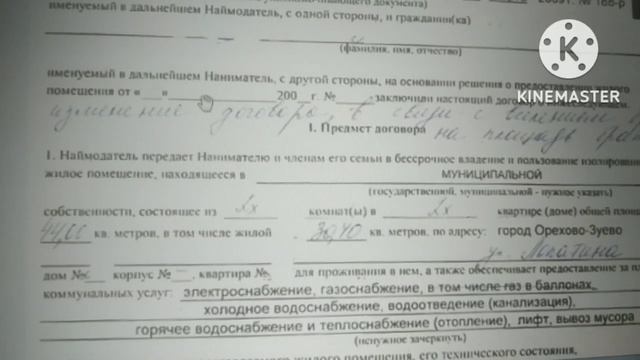 именуемый в дальнейшем Наймодатель, с одной стороны, и гражданин(ка)
(фамилия, имя, отчество)
именуемый в дальнейшем Наниматель, с другой стороны, на основании решения о предоставлении
помещения от « » 200 г. № заключили настоящий
изменение договора в связи с
I. Предмет договора на площадь
1. Наймодатель передает Нанимателю и членам его семьи в бессрочное владение и пользование
жилое помещение, находящееся в МУНИЦИПАЛЬНОЙ
(государственной, муниципальной - нужное указать)
собственности, состоящее из 2х комнат(ы) в 2х квартире (доме) общей
44,00 кв. метров, в том числе жилой 30,40 кв. метров, по адресу: город Орехово-Зуево
ул. Лопатина
дом № корпус № , квартира № для проживания в нем, а также обеспечивает предоставление за
коммунальных услуг: электроснабжение, газоснабжение, в том числе газ в баллонах,
холодное водоснабжение, водоотведение (канализация),
горячее водоснабжение и теплоснабжение (отопление), лифт, вывоз мусора
(ненужное зачеркнуть)
жилого помещения, его технического состояния,
KINEMASTER